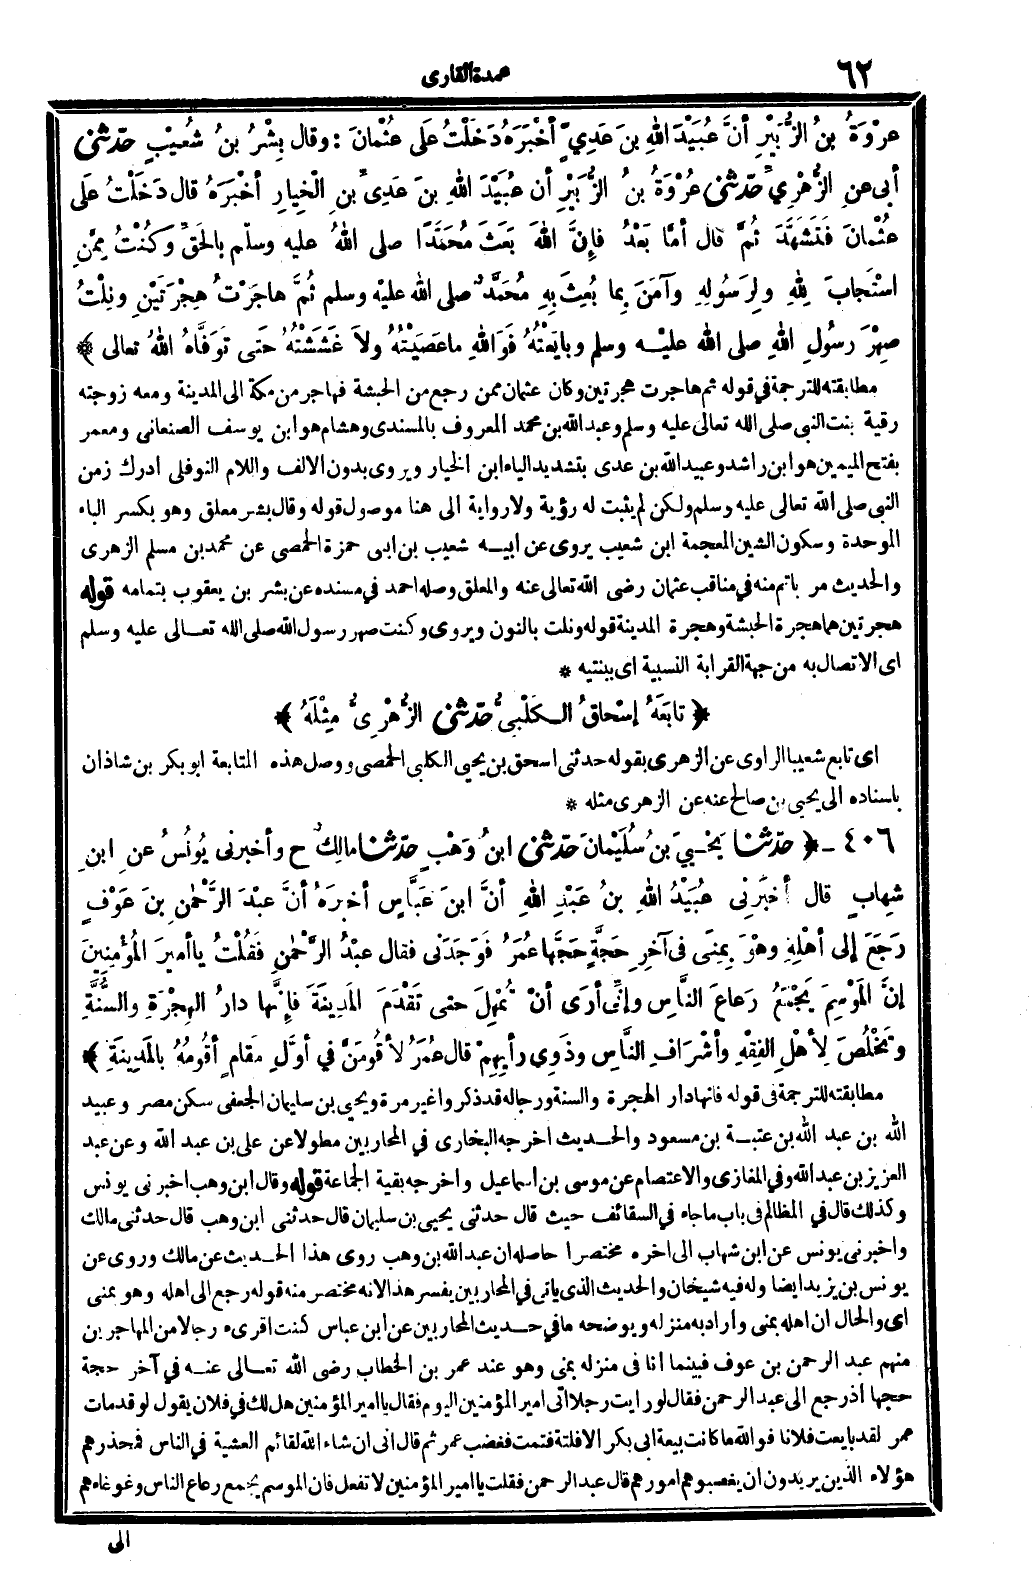 ٦٢
عمدة القارى
عُرْوَةُ بنُ الزُّبَيْرِ أنَّ عُبَيْدَ اللهِ بنَ عَدِيٍّ أخْبَرَهُ دَخَلْتُ عَلَى عُثْمانَ : وقال بِشْرُ بنُ شُعَيْبٍ حدّثنى
أبى عنِ الزُّهْرِيِّ حدّثنى عُرْوَةُ بنُ الزُّبَيْرِ أن عُبَيْدَ اللهِ بنَ عَدِىِّ بنِ الْخِيارِ أخْبَرَهُ قال دَخَلْتُ عَلَى
عُثْمانَ فَتَشَهَّدَ ثُمَّ قال أمَّا بَعْدُ فإنَّ اللهَ بَعَثَ مُحَمَّدًا صلى اللهُ عليه وسلّم بالحَقِّ وَكُنْتُ مِمَّنِ
اسْتَجابَ لِلهِ ولِرَسُولِهِ وآمَنَ بِما بُعِثَ بِهِ مُحَمَّدٌ صلى الله عليْه وسلم ثُمَّ هاجَرْتُ هِجْرَتَيْنِ ونِلْتُ
صِهْرَ رسُولِ اللهِ صلى الله عليْـه وسلم وبايَعْتُهُ فَوَاللهِ ماعَصَيْتُهُ ولاَ غَشَشْتُهُ حَتى تَوَفَّاهُ اللهُ تعالى ﴾
مطابقته للترجمة في قوله ثم هاجرت هجرتين وكان عثمان ممن رجع من الحبشة فهاجر من مكة الى المدينة ومعه زوجته
رقية بنت النبى صلى الله تعالى عليه وسلم وعبد الله بن محمد المعروف بالمسندى وهشام هو ابن يوسف الصنعانى ومعمر
بفتح الميمين هو ابن راشد وعبيد الله بن عدى بتشديد الياء ابن الخيار ويروى بدون الالف واللام النوفلى ادرك زمن
النبى صلى الله تعالى عليه وسلم ولكن لم يثبت له رؤية ولا رواية الى هنا موصول قوله وقال بشر معلق وهو بكسر الباء
الموحدة وسكون الشين المعجمة ابن شعيب يروى عن ابيـه شعيب بن ابى حمزة الحمصى عن محمد بن مسلم الزهرى
والحديث مر باتم منه في مناقب عثمان رضى الله تعالى عنه والمعلق وصله احمد في مسنده عن بشر بن يعقوب بتمامه قوله
هجرتين هما هجرة الحبشة وهجرة المدينة قوله ونلت بالنون ويروى وكنت صهر رسول الله صلى الله تعـالى عليه وسلم
اى الاتصال به من جهة القرابة النسبية اى ببنتيه *
﴿ تابَعَهُ إسْحاقُ الـكَلْبِىُّ حدّثنى الزُّهْرِىُّ مِثْلَهُ ﴾
اى تابع شعيبا الراوى عن الزهرى بقوله حدثنى اسحق بن يحيى الكلبى الحمصى ووصل هذه المتابعة ابو بكر بن شاذان
باسناده الى يحيى بن صالح عنه عن الزهرى مثله *
٤٠٦ - ﴿ حدّثنا يَحْـيَى بنُ سُلَيْمانَ حدّثنى ابنُ وَهْبٍ حدّثنا مالِكٌ ح وأخبرنى يُونُسُ عنِ ابنِ
شِهابٍ قال أخبَرَنِى عُبَيْدُ اللهِ بنُ عَبْدِ اللهِ أنَّ ابنَ عَبَّاسٍ أخبرَهُ أنَّ عبْدَ الرَّحْمٰنِ بنَ عَوْفٍ
رَجَعَ إلى أهْلِهِ وهْوَ بِمِنًى فى آخِرِ حَجَّةٍ حَجَّها عُمَرُ فَوَجَدَنى فقال عبْدُ الرَّحْمٰنِ فَقُلْتُ ياأميرَ المُؤْمِنِينَ
إنَّ المَوْسِمَ يَجْمَعُ رَعاعَ النَّاسِ وإنِّى أرَى أنْ تُمْهِلَ حتى تَقْدَمَ المَدِينَةَ فإنَّها دارُ الهِجْرَةِ والسُّنَّةِ
وتَخْلُصَ لِأهْلِ الفِقْهِ وأشْرَافِ النَّاسِ وذَوِى رأيِهِمْ قال عُمَرُ لأقُومَنَّ في أوَّلِ مَقامٍ أقُومُهُ بالمَدِينَةِ ﴾
مطابقته للترجمة فى قوله فانها دار الهجرة والسنة ورجاله قد ذكروا غير مرة ويحيى بن سليمان الجعفى سكن مصر وعبيد
الله بن عبد الله بن عتبـة بن مسعود والحـديث اخرجه البخارى في المحاربين مطولا عن على بن عبد الله وعن عبد
العزيز بن عبد الله وفي المغازى والاعتصام عن موسى بن اسماعيل واخرجه بقية الجماعة قوله وقال ابن وهب اخبرنى يونس
وكذلك قال في المظالم فى باب ما جاء في السقائف حيث قال حدثنى يحيى بن سليمان قال حدثنى ابن وهب قال حدثنى مالك
واخبرنى يونس عن ابن شهاب الى اخره مختصرا حاصله ان عبد الله بن وهب روى هذا الحـديث عن مالك وروى عن
يونس بن يزيد ايضا وله فيه شيخان والحديث الذى ياتى في المحاربين يفسر هذا لانه مختصر منه قوله رجع الى اهله وهو بمنى
اى والحال ان اهله بمنى وأراد به منزله ويوضحه ما في حـديث المحاربين عن ابن عباس كنت اقرىء رجالا من المهاجرين
منهم عبد الرحمن بن عوف فبينما أنا فى منزله بمنى وهو عند عمر بن الخطاب رضى الله تعـالى عنـه في آخر حجة
حجها أذ رجع الى عبد الرحمن فقال لو رايت رجلا اتى امير المؤمنين اليوم فقال يا امير المؤمنين هل لك في فلان يقول لو قد مات
عمر لقد بايعت فلانا فوالله ما كانت بيعة ابى بكر الا فلتة فتمت فغضب عمر ثم قال انى ان شاء الله لقائم العشية في الناس فمحذرهم
هؤلاء الذين يريدون ان يغصبوهم امورهم قال عبد الرحمن فقلت يا امير المؤمنين لا تفعل فان الموسم يجمع رعاع الناس وغوغاءهم
الى